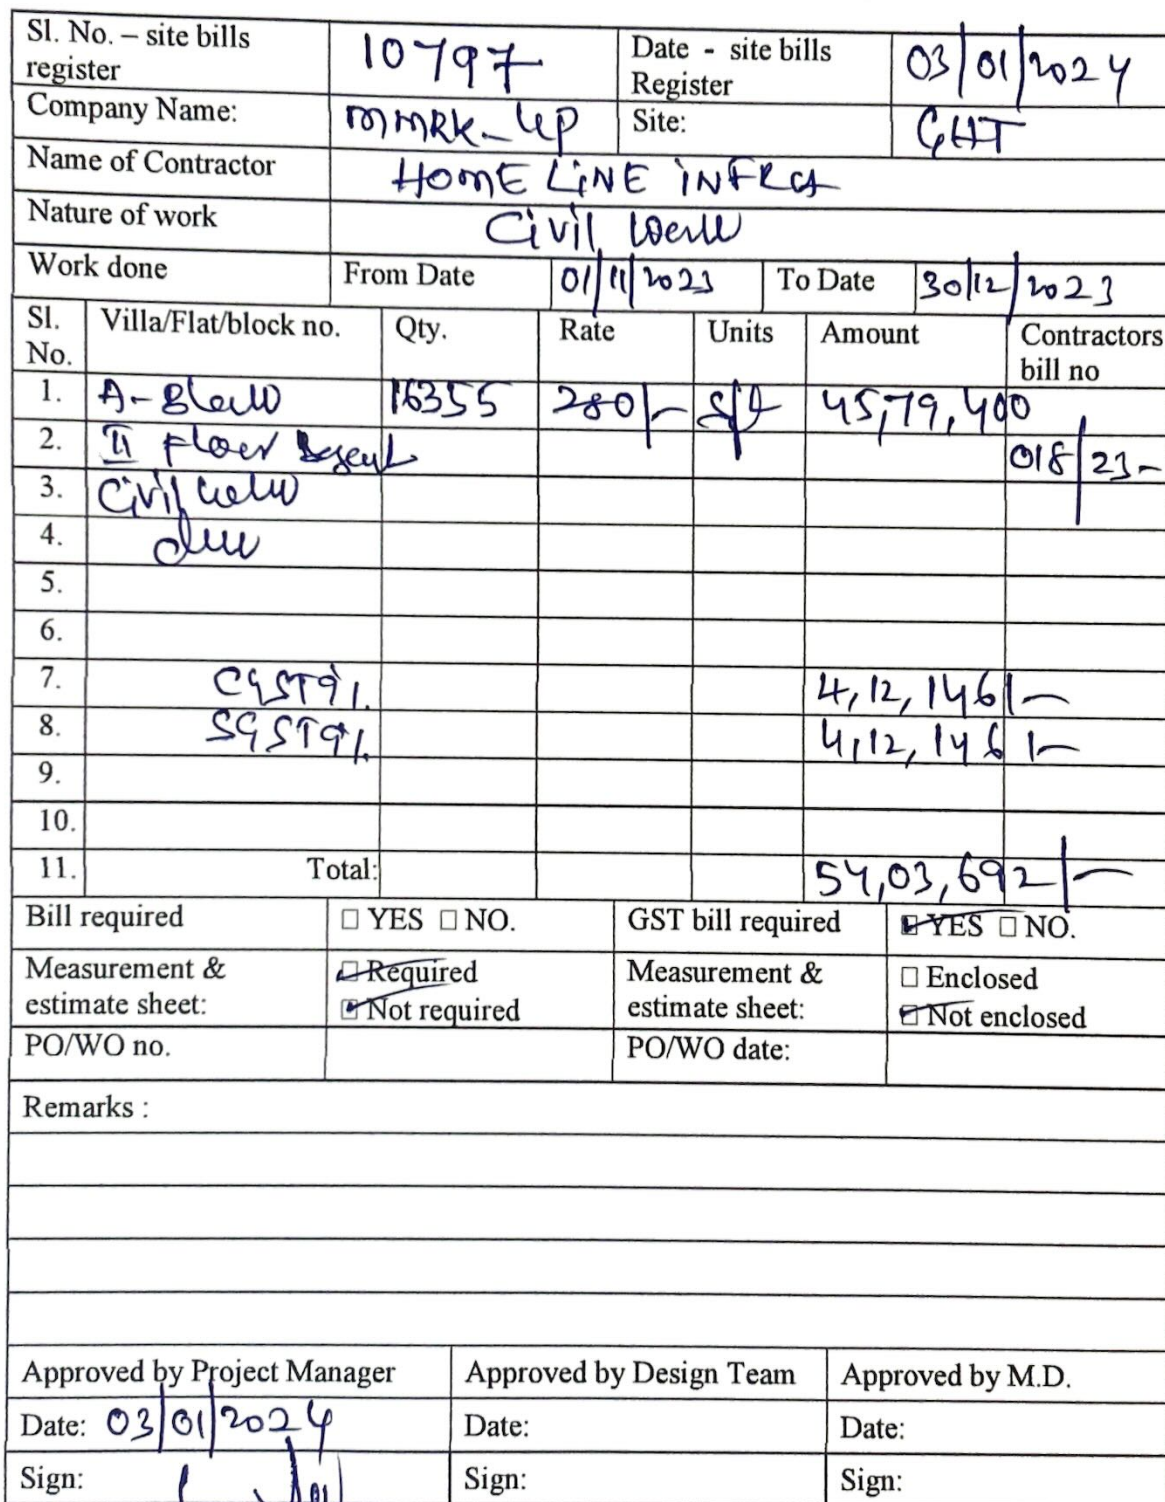 Sl. No. – site bills register 10797 Date - site bills Register 03/01/2024
Company Name: MMRK-UP Site: GHT
Name of Contractor HOME LiNE iNFRA
Nature of work Civil
Work done From Date 01/11/2023 To Date 30/12/2023
Sl. No. Villa/Flat/block no. Qty. Rate Units Amount Contractors bill no
1. A- 16355 280/- sft 45,79,400
2. II Floor 018/23-
3. Civil
4.
5.
6.
7. CGST 9% 4,12,146/-
8. SGST 9% 4,12,146/-
9.
10.
11. Total: 54,03,692/-
Bill required □ YES □ NO. GST bill required □ YES □ NO.
Measurement & estimate sheet: □ Required □ Not required Measurement & estimate sheet: □ Enclosed □ Not enclosed
PO/WO no. PO/WO date:
Remarks :
Approved by Project Manager Approved by Design Team Approved by M.D.
Date: 03/01/2024 Date: Date:
Sign: Sign: Sign: